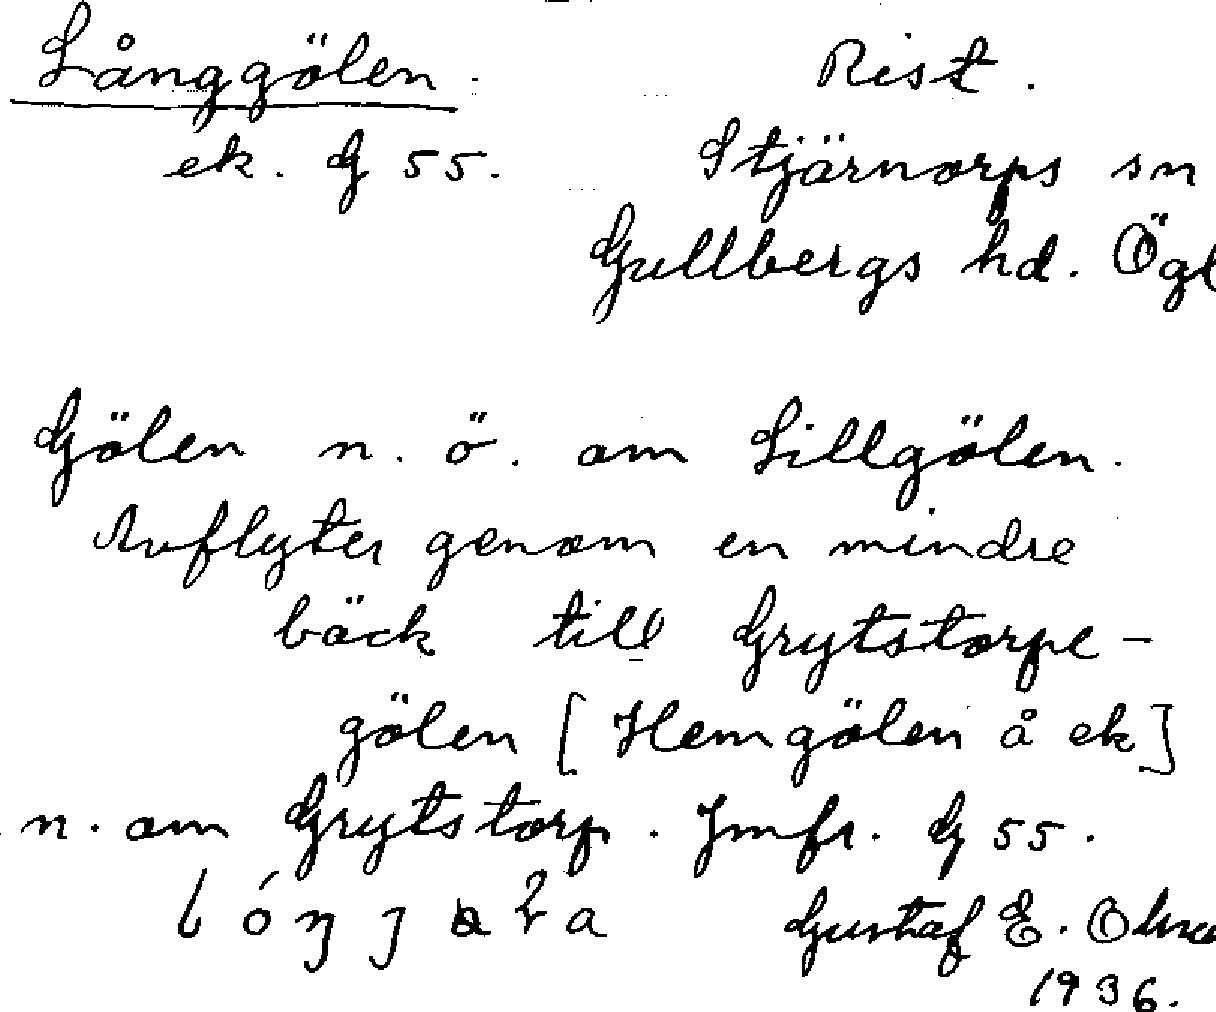 Långgölen. Rist.
ek. G 55. Stjärnorps sn
Gullbergs hd. Ögl
Gölen n. ö. om Lillgölen.
Avflyter genom en mindre
bäck till Grytstorpe-
gölen [Hemgölen å ek]
n. om Grytstorp. Jmfr. G 55.
Gustaf E.
1936.